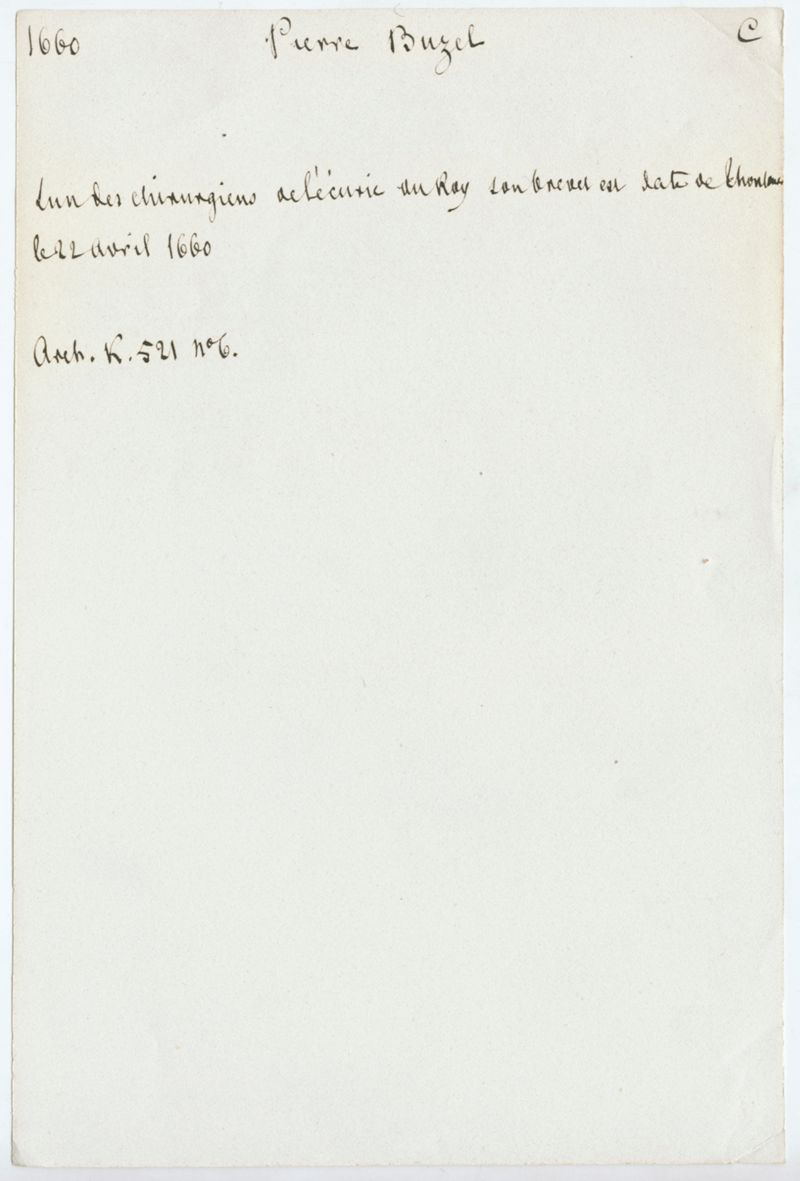 1660 Pierre Buzel C
Lun des chirurgiens de l'écurie du Roy son brevet est daté de Thoulouse
le 22 avril 1660
Arch. K. 521 n° 6.